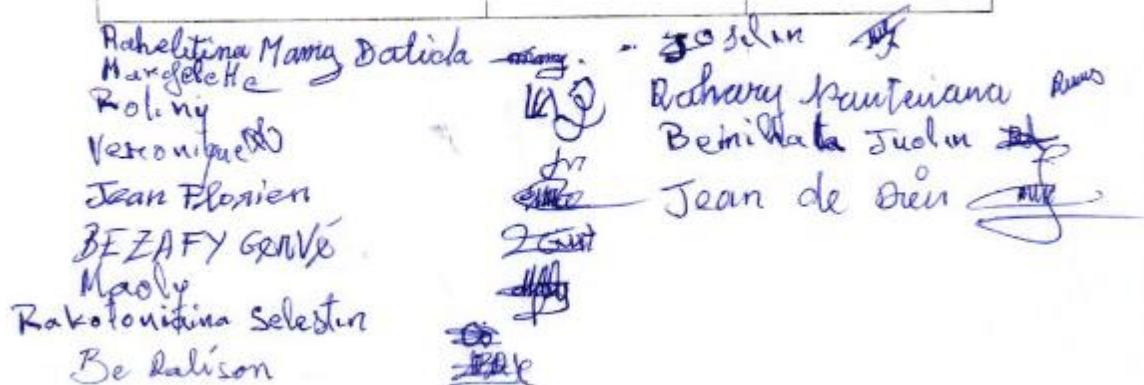 Rahelitina Mamy Dalida
Margelette
Roliny
Veronique
Jean Florien
BEZAFY GERVÉ
Maoly
Rakotonirina Selestin
Be Ralison
Joselin
Rahary
Bemihata Judin
Jean de Dieu